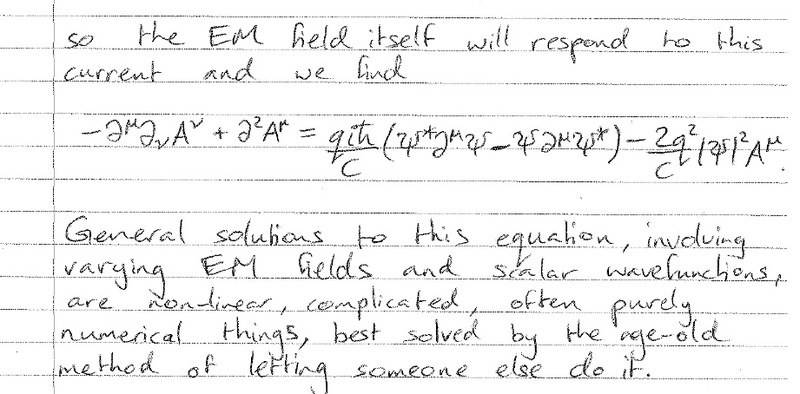 so the EM field itself will respond to this
current and we find
-∂^μ∂_νA^ν + ∂²A^μ = qiħ/c (ψ*∂^μψ - ψ∂^μψ*) - 2q²/c |ψ|²A^μ.
General solutions to this equation, involving
varying EM fields and scalar wavefunctions,
are non-linear, complicated, often purely
numerical things, best solved by the age-old
method of letting someone else do it.